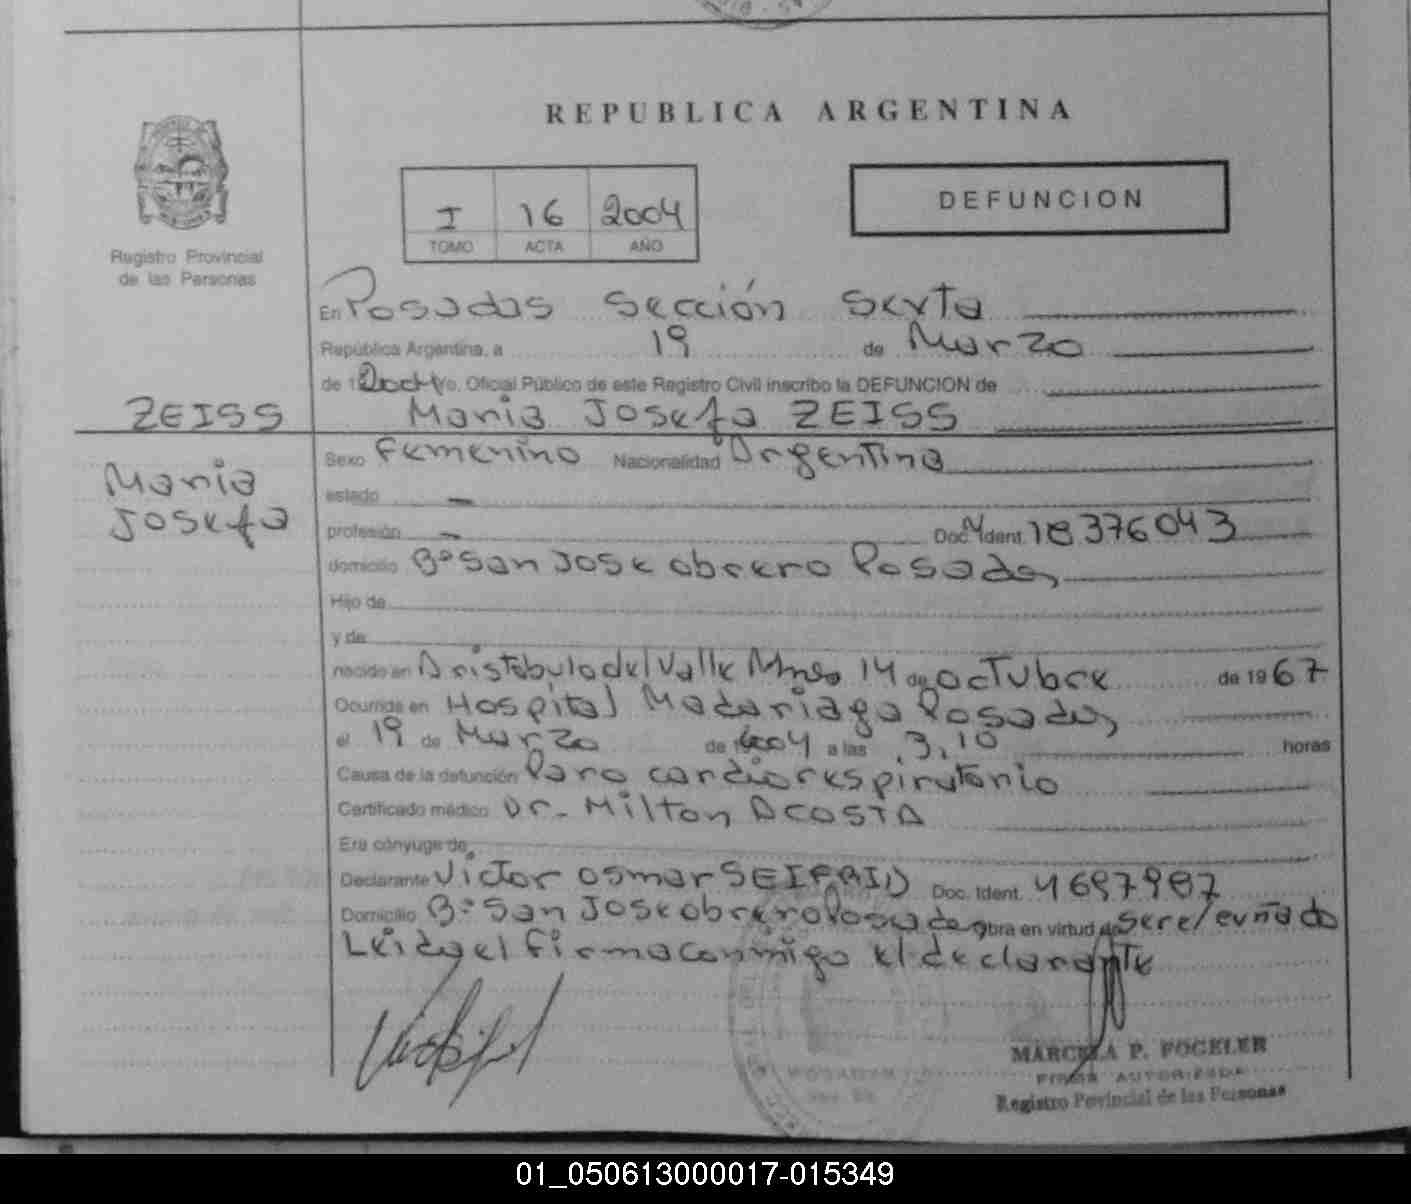 REPUBLICA ARGENTINA
Registro Provincial
de las Personas
I 16 2004
TOMO ACTA AÑO
DEFUNCION
En Posadas Sección Sexta
República Argentina, a 19 de Marzo
de 1 2004 yo, Oficial Público de este Registro Civil inscribo la DEFUNCION de
ZEISS
Maria Josefa ZEISS
Maria
Josefa
Sexo Femenino Nacionalidad Argentina
estado —
profesión — Doc. Ident. 18376043
domicilio Bº San Jose obrero Posadas
Hijo de
y de
nacido en Aristobulo del Valle Mnes 14 de octubre de 1967
Ocurrida en Hospital Madariaga Posadas
el 19 de Marzo de 2004 a las 3,10 horas
Causa de la defunción Paro cardiorespiratorio
Certificado médico Dr. Milton ACOSTA
Era cónyuge de
Declarante Victor osmar SEIFRID Doc. Ident.
Domicilio Bº San Jose obrero Posadas Obra en virtud de
Leida el firma conmigo el declarante
POSADAS
MARCELA P. FOGELER
FIRMA AUTORIZADA
Registro Provincial de las Personas
01_050613000017-015349